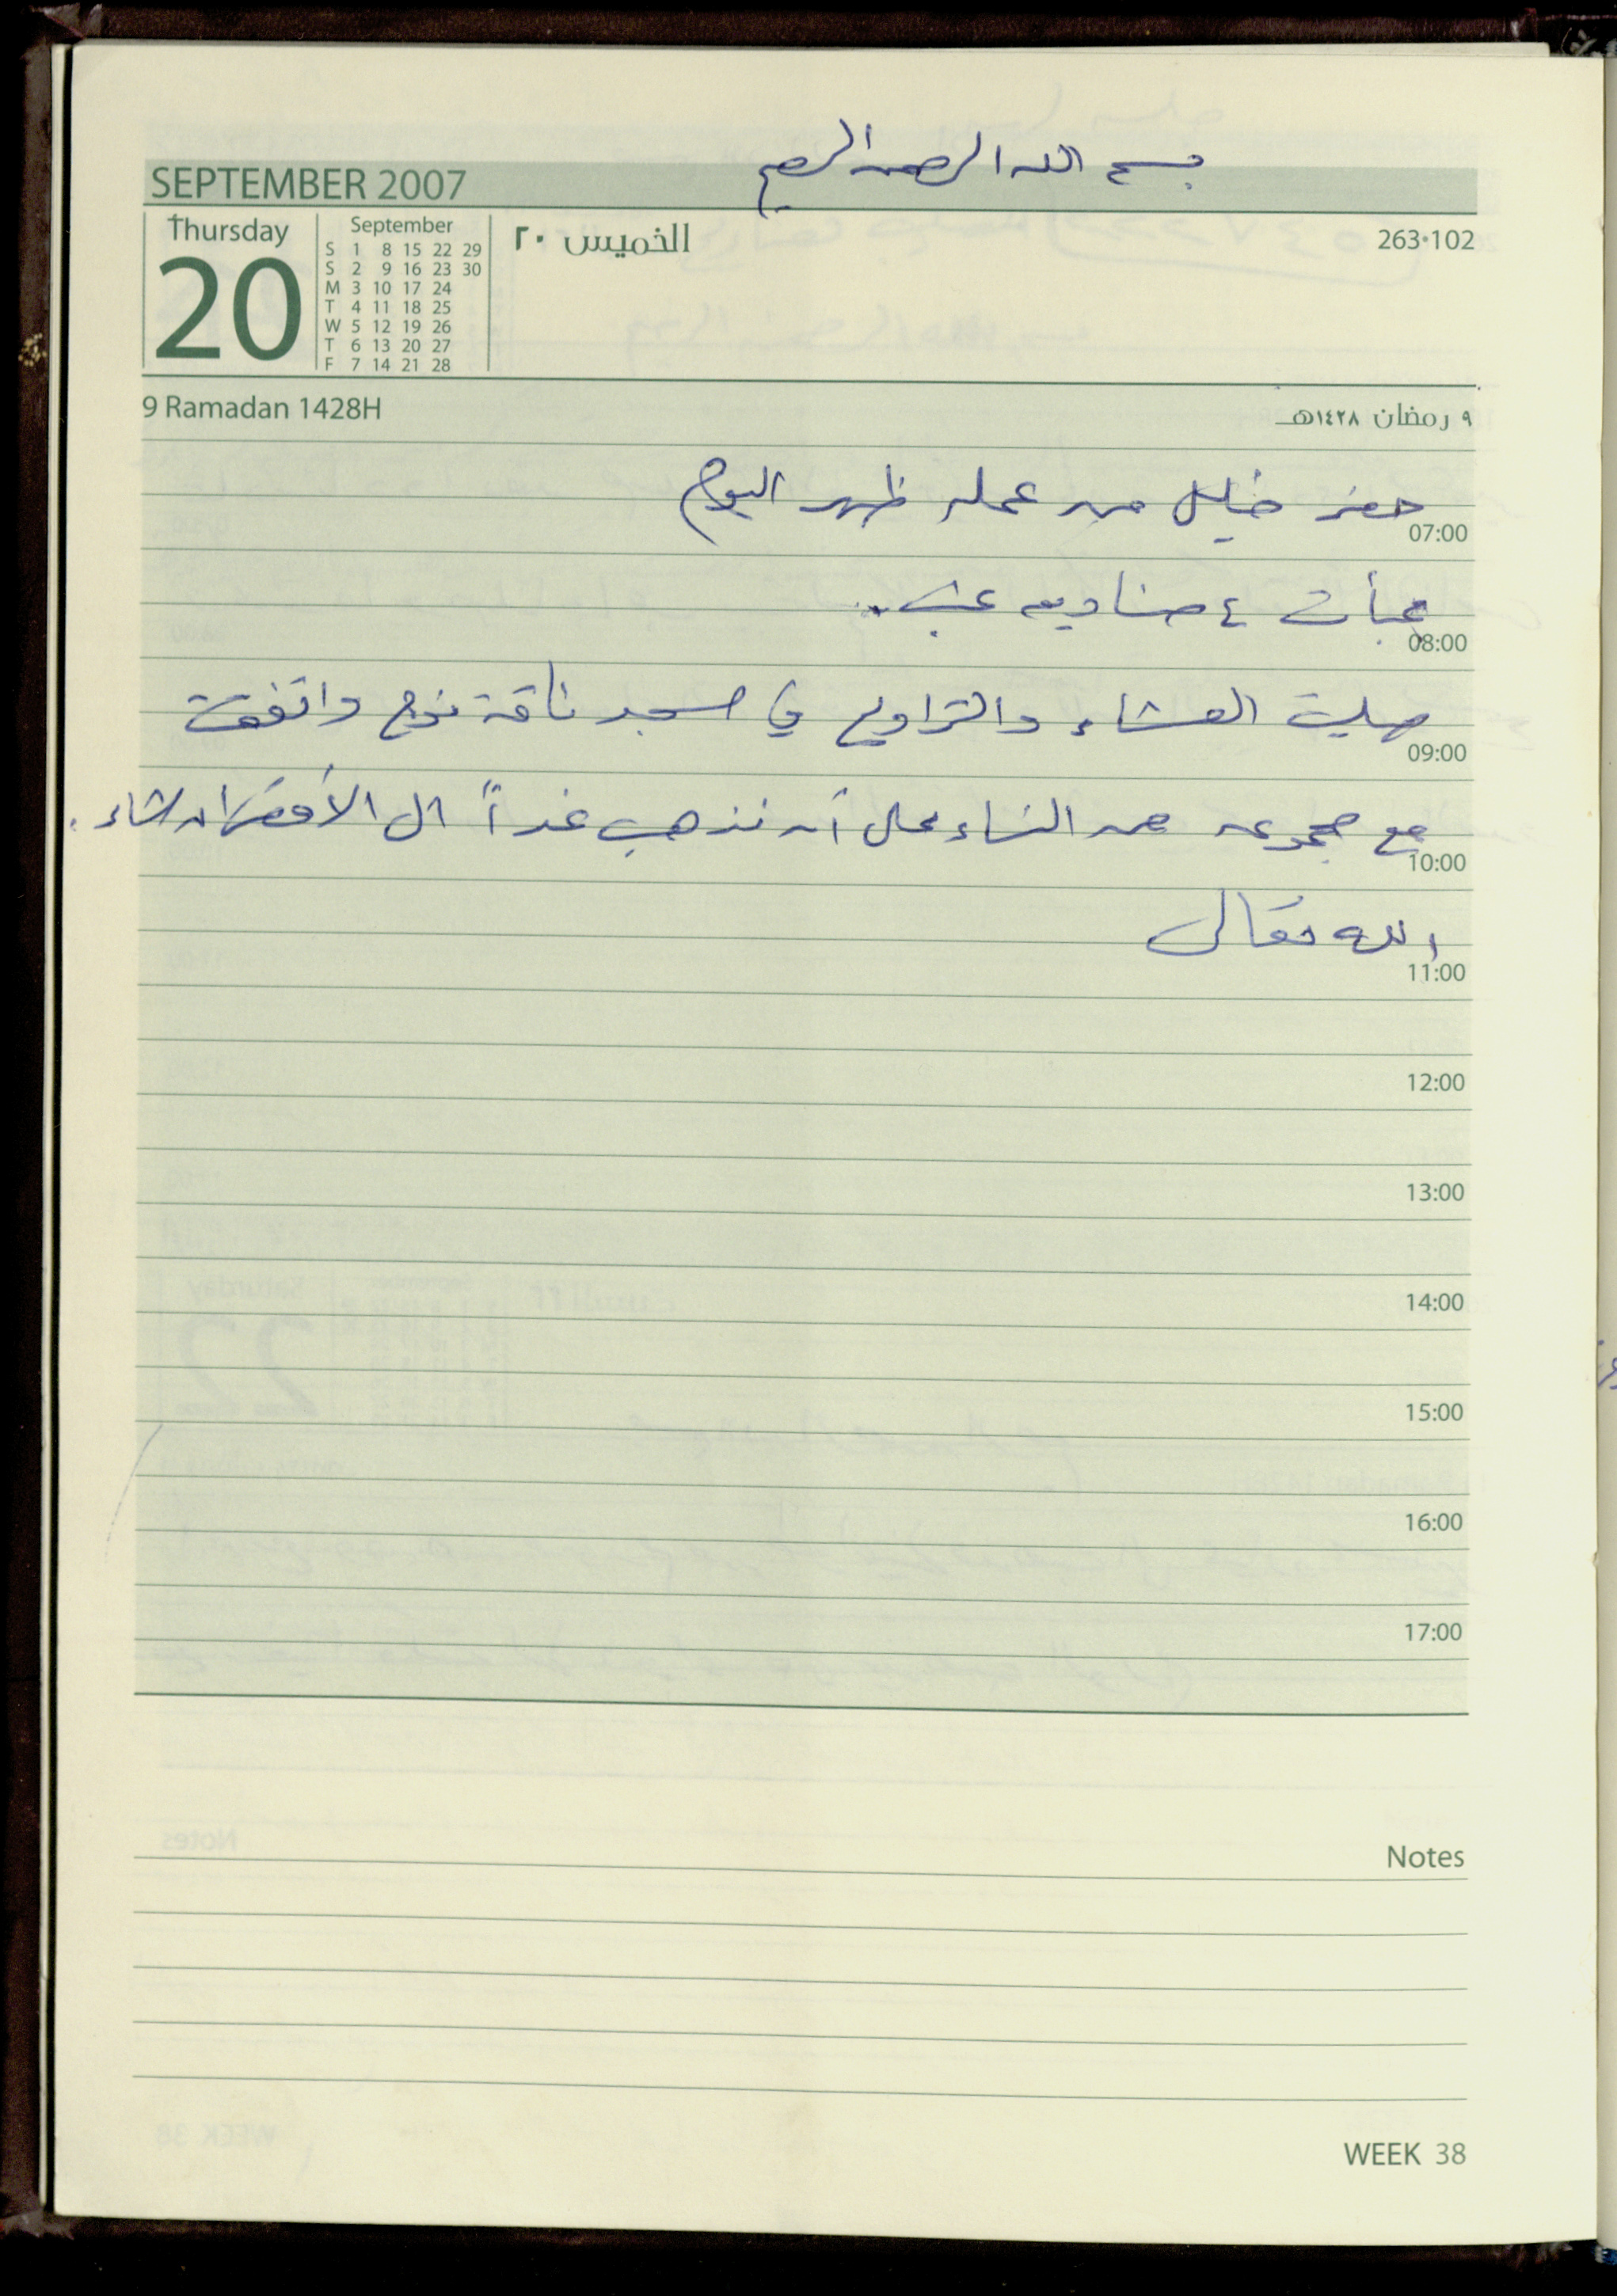 بسم الله الرحمن الرحيم
SEPTEMBER 2007
Thursday
20
September
S 1 8 15 22 29
S 2 9 16 23 30
M 3 10 17 24
T 4 11 18 25
W 5 12 19 26
T 6 13 20 27
F 7 14 21 28
الخميس ٢٠
263•102
9 Ramadan 1428H
٩ رمضان ١٤٢٨هـ
حضر خليل من عمله ظهر اليوم
07:00
عبأت ٤ صناديق عنب..
08:00
صليت العشاء والتراويح في مسجد ناقة نوح واتفقت
09:00
مع مجموعه من النساء على أن نذهب غداً الى الأقصى ان شاء.
10:00
الله تعالى
11:00
12:00
13:00
14:00
15:00
16:00
17:00
Notes
WEEK 38